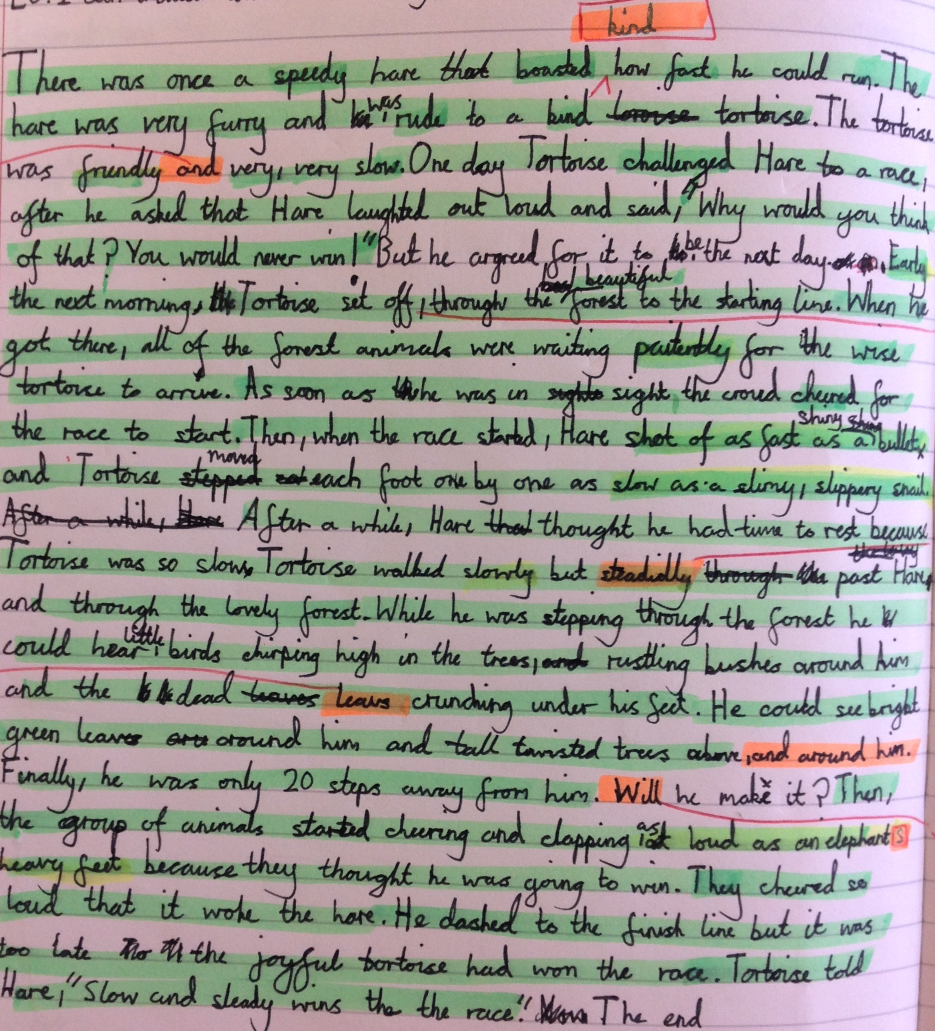 kind
There was once a speedy hare that boasted how fast he could run. The
hare was very furry and was rude to a kind tortoise. The tortoise
was friendly and very, very slow. One day Tortoise challenged Hare to a race,
after he asked that Hare laughted out loud and said, "Why would you think
of that? You would never win!" But he argreed for it to be the next day. Early
the next morning, Tortoise set off, through the beautiful forest to the starting line. When he
got there, all of the forest animals were waiting paitently for the wise
tortoise to arrive. As soon as he was in sight the croud cheered for
the race to start. Then, when the race started, Hare shot of as fast as a shiny bullet,
and Tortoise moved each foot one by one as slow as a slimy, slippery snail.
After a while, After a while, Hare thought he had time to rest because
Tortoise was so slow. Tortoise walked slowly but steadially past Hare,
and through the lovely forest. While he was stepping through the forest he
could hear little birds chirping high in the trees, rustling bushes around him
and the dead leavs crunching under his feet. He could see bright
green leaves around him and tall twisted trees above, and around him.
Finally, he was only 20 steps away from him. Will he make it? Then,
the group of animals started cheering and clapping as loud as an elephants
heavy feet because they thought he was going to win. They cheered so
loud that it woke the hare. He dashed to the finish line but it was
too late the joyful tortoise had won the race. Tortoise told
Hare, "Slow and steady wins the the race." The end